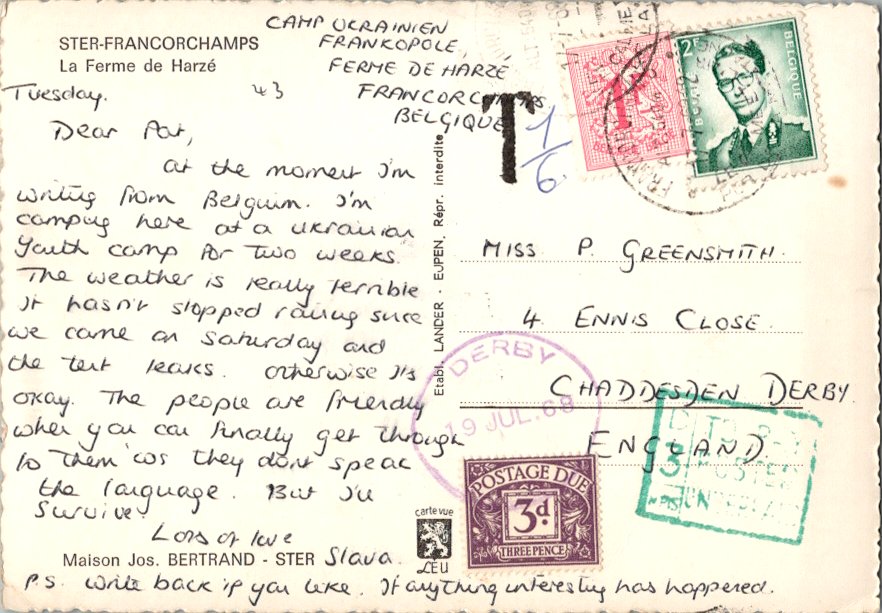 STER-FRANCORCHAMPS
La Ferme de Harzé
CAMP UKRAINIEN
FRANKOPOLE,
FERME DE HARZÉ
FRANCORCHAMPS
BELGIQUE
Tuesday. 43
Dear Pat,
at the moment I'm
writing from Belgium. I'm
camping here at a Ukrainian
Youth camp for two weeks.
The weather is really terrible
It hasn't stopped raining since
we came on Saturday and
the tent leaks. Otherwise its
okay. The people are friendly
when you can finally get through
to them 'cos they dont speak
the language. But I'll
Survive.
Lots of love
Slava.
P.S. Write back if you like. If anything interesting has happened.
Maison Jos. BERTRAND - STER
Etabl. LANDER - EUPEN, Répr. interdite
carte vue
LÉU
T 1/6.
1
2F
BELGIQUE
MISS P. GREENSMITH.
4 ENNIS CLOSE.
CHADDESDEN DERBY.
ENGLAND
DERBY
19 JUL. 68
POSTAGE DUE
3d.
THREEPENCE
3
POSTED